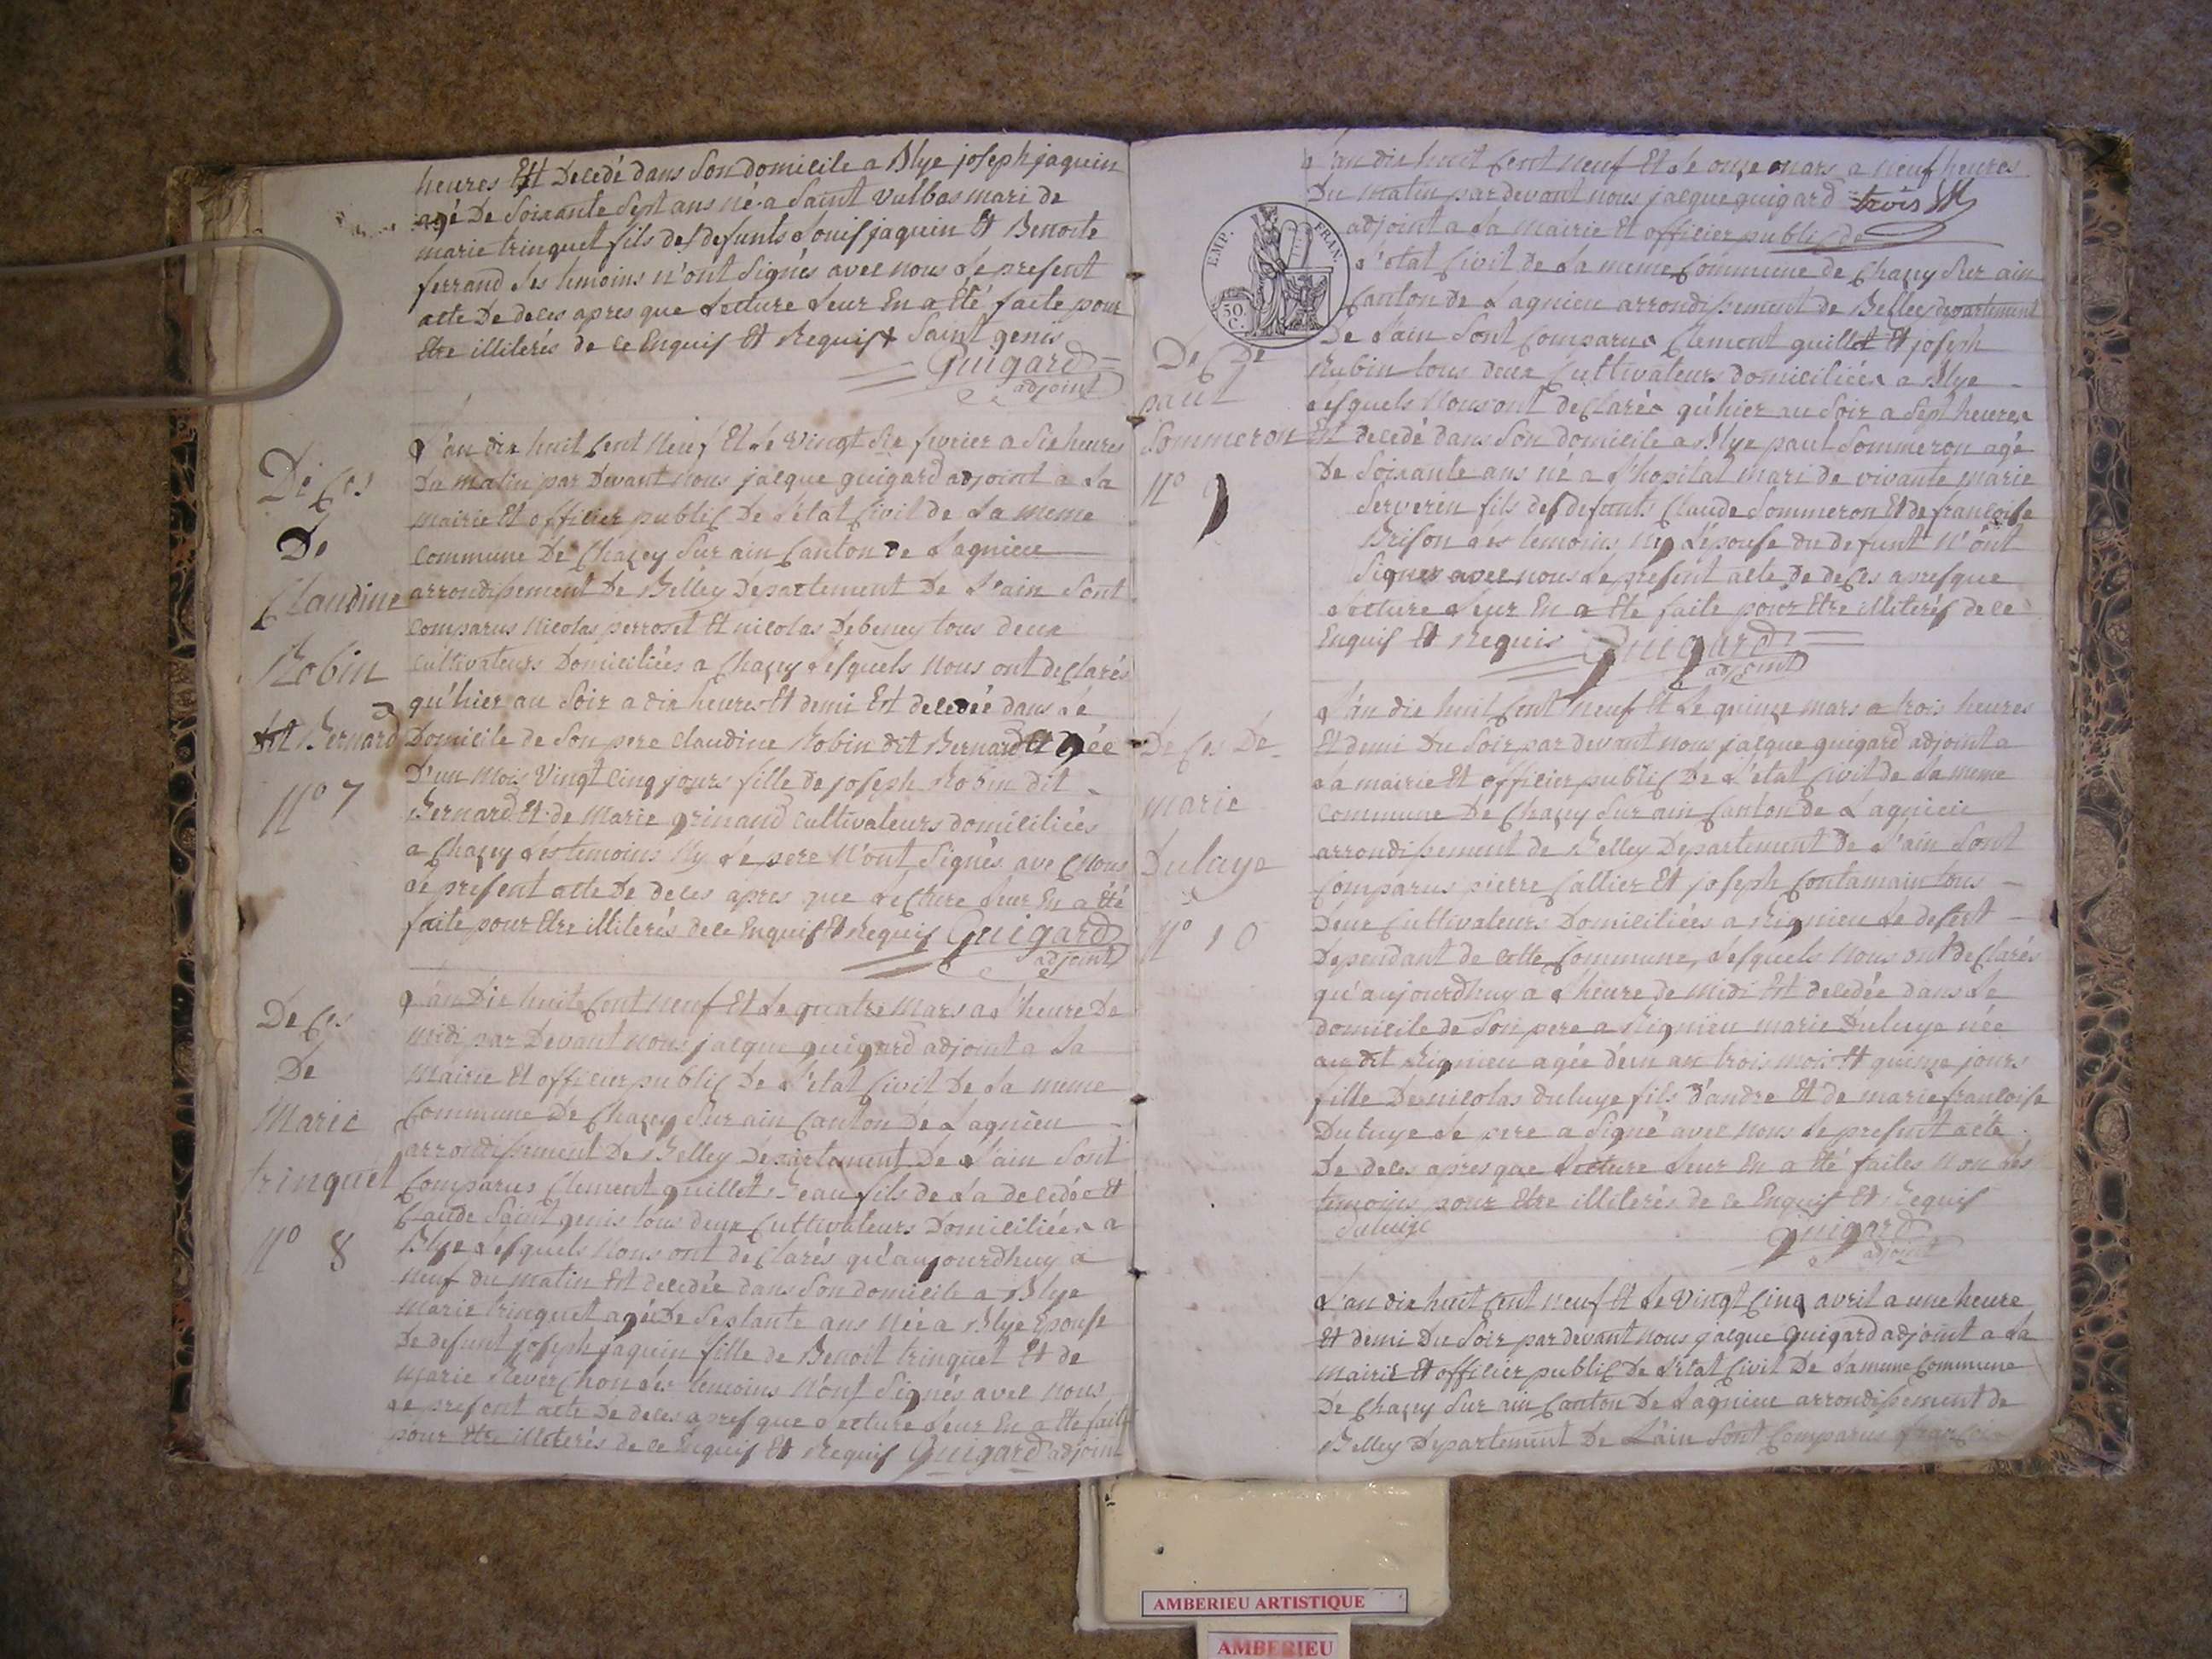 heures Est Decedé dans Son domicile a Blye joseph jaquin
agé De Soixante Sept ans né a Saint Vulbas mari de
marie trinquet fils des defunts Louis jaquin Et Benoite
ferrand Les temoins n'ont Signés avec nous Le present
acte De deces apres que Lecture Leur En a Eté faite pour
Etre illiterés de ce Enquis Et Requis Saint genis
Guigard
adjoint
DeCes
De
Claudine
Robin
dit Bernard
N° 7
L'an dix huit Cent Neuf Et Le Vingt Six fevrier a Six heures
Du matin par Devant Nous jacque guigard adjoint a La
mairie Et officier public De L'etat Civil de La meme
Commune De Chazey Sur ain Canton de Lagnieu
arrondissement De Belley Departement De L'ain Sont
Comparus Nicolas perroset Et nicolas Debeney tous deux
Cultivateurs Domiciliées a Chazey Lesquels Nous ont declarés
qu'hier au Soir a dix heures Et demi Est decedée dans Le
Domicile de Son pere Claudine Robin dit Bernard agée
D'un mois Vingt Cinq jours fille de joseph Robin dit
Bernard Et de Marie grinand Cultivateurs domiciliées
a Chazey Les temoins Ny Le pere N'ont Signés avec Nous
Le present acte De deces apres que Lecture Leur En a Eté
faite pour Etre illiterés de ce Enquis Et Requis Guigard
adjoint
DeCes
De
Marie
trinquet
N° 8
L'an Dix huit Cent neuf Et Le quatre Mars a L'heure De
midi par Devant Nous jacque guigard adjoint a La
Mairie Et officier public De L'etat Civil De La meme
Commune De Chazey Sur ain Canton De Lagnieu
arrondissement De Belley Departement De L'ain Sont
Comparus Clement guillet Beau fils de La decedée Et
Claude Saint genis tous deux Cultivateurs Domiciliées a
Blye Lesquels Nous ont declarés qu'aujourdhuy a
neuf du matin Est decedée dans Son domicile a Blye
Marie trinquet agée De Septante ans Née a Blye Epouse
De defunt joseph jaquin fille de Benoit trinquet Et de
Marie Reverchon Les temoins N'ont Signés avec Nous
Le present acte De deces apres que Lecture Leur En a Eté faite
pour Etre illiterés de ce Enquis Et Requis Guigard adjoint
EMP. FRAN.
50.
C.
L'an dix huit Cent neuf Et Le onze mars a neuf heures
Du matin par devant nous jacque guigard trois
adjoint a La mairie Et officier public de
L'etat Civil de La meme Commune de Chazey Sur ain
Canton de Lagnieu arrondissement de Belley departement
De L'ain Sont Comparus Clement guillet Et joseph
Rubin tous deux Cultivateurs domiciliées a Blye
Lesquels Nous ont declarés qu'hier au Soir a Sept heures
Est decedé dans Son domicile a Blye paul Sommeron agé
De Soixante ans né a L'hopital mari de vivante marie
Serverin fils des defunts Claude Sommeron Et de francoise
Brison Les temoins Ny L'épouse du defunt N'ont
Signes avec nous Le present acte De deces apres que
Lecture Leur En a Eté faite pour Etre illiterés de ce
Enquis Et Requis Guigard
adjoint
DeC De
paul
Sommeron
N° 9
L'an dix huit Cent Neuf Et Le quinze mars a trois heures
Et demi Du Soir par devant nous jacque guigard adjoint a
La mairie Et officier public De L'etat Civil de La meme
Commune De Chazey Sur ain Canton de Lagnieu
arrondissement de Belley Departement De L'ain Sont
Comparus pierre Callier Et joseph Contamain tous
Deux Cultivateurs Domiciliées a Rignieu Le desert
Dependant de Cette Commune, Lesquels Nous ont declarés
qu'aujourdhuy a L'heure de Midi Est decedée dans Le
domicile de Son pere a Rignieu marie Duluye née
au dit Rignieu agée d'un an trois mois Et quinze jours
fille De nicolas duluye fils d'andre Et de marie francoise
Duluye Le pere a Signé avec nous Le present acte
De deces apres que Lecture Leur En a Eté faites Non Les
temoins pour Etre illiterés de ce Enquis Et Requis
duluye
Guigard
adjoint
DeCes De
Marie
Duluye
N° 10
L'an dix huit Cent neuf Et Le Vingt Cinq avril a une heure
Et demi Du Soir par devant nous jacque Guigard adjoint a La
Mairie Et officier public De L'etat Civil De La meme Commune
De Chazey Sur ain Canton De Lagnieu arrondissement de
Belley Departement De L'ain Sont Comparus
AMBERIEU ARTISTIQUE
AMBERIEU